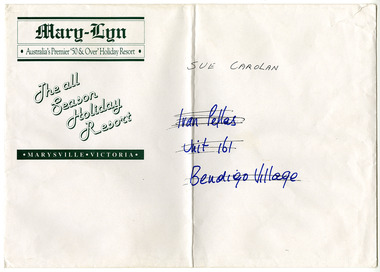 Mary-Lyn
• Australia's Premier '50 & Over' Holiday Resort •
The all
Season
Holiday
Resort
• MARYSVILLE • VICTORIA •
SUE CAROLAN
Ivan Pellas
Unit 161
Bendigo Village